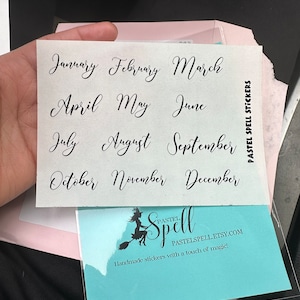 January February March
April May June
July August September
October November December
PASTEL SPELL STICKERS
PASTEL
Spell
PASTELSPELL.ETSY.COM
Handmade stickers with a touch of magic!